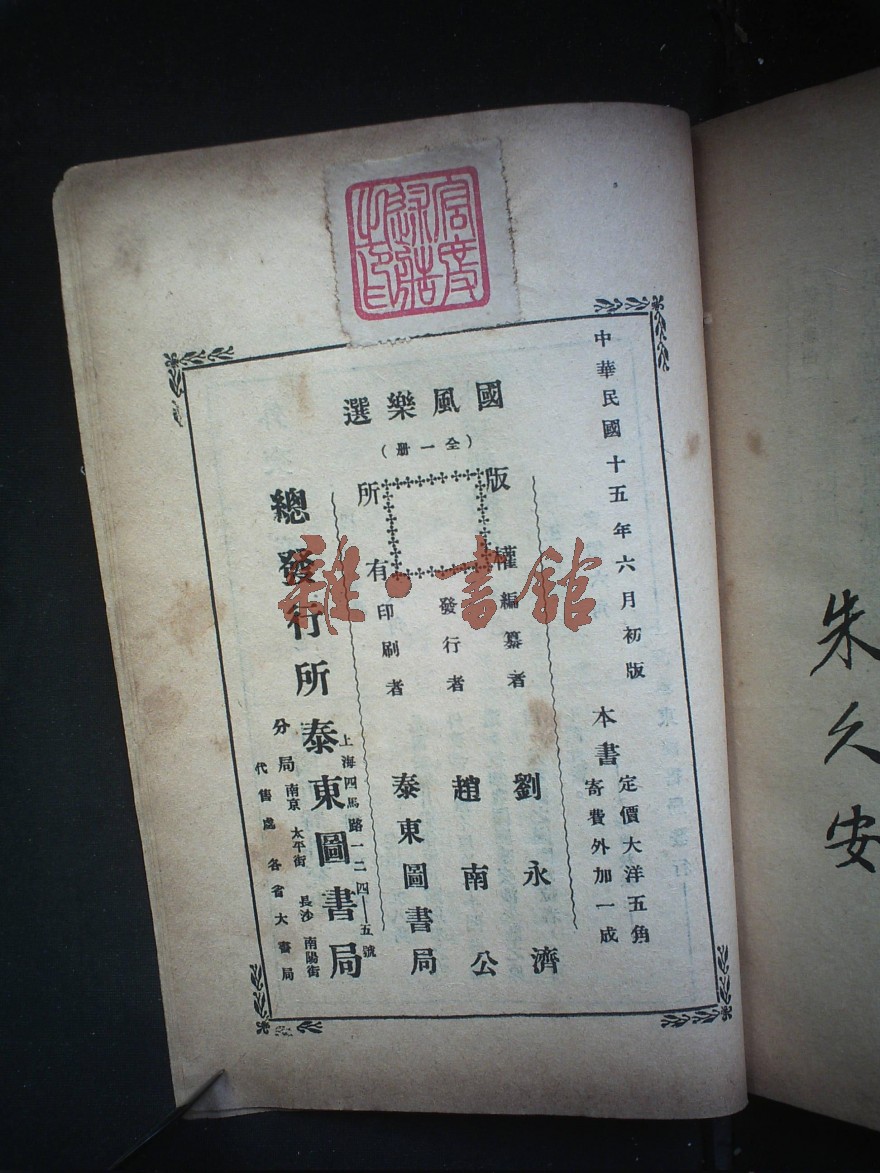 中華民國十五年六月初版
本書
定價大洋五角
寄費外加一成
國風樂選
（全一册）
版權所有
編纂者 劉永濟
發行者 趙南公
印刷者 泰東圖書局
總發行所 泰東圖書局
上海四馬路一二四—五號
分局 南京太平街 長沙南陽街
代售處 各省大書局
雜·書館
朱久安